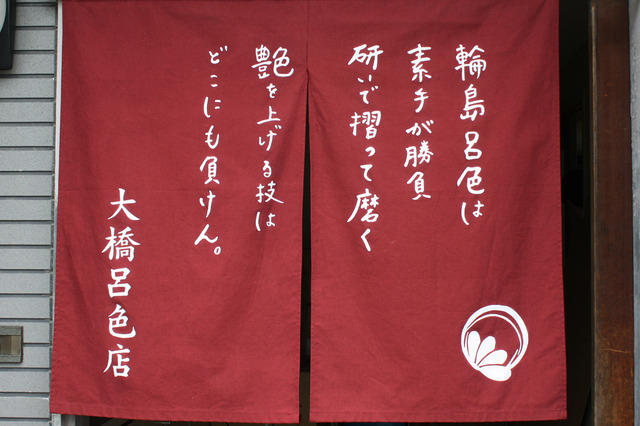 輪島呂色は
素手が勝負
研いで摺って磨く
艶を上げる技は
どこにも負けん。
大橋呂色店